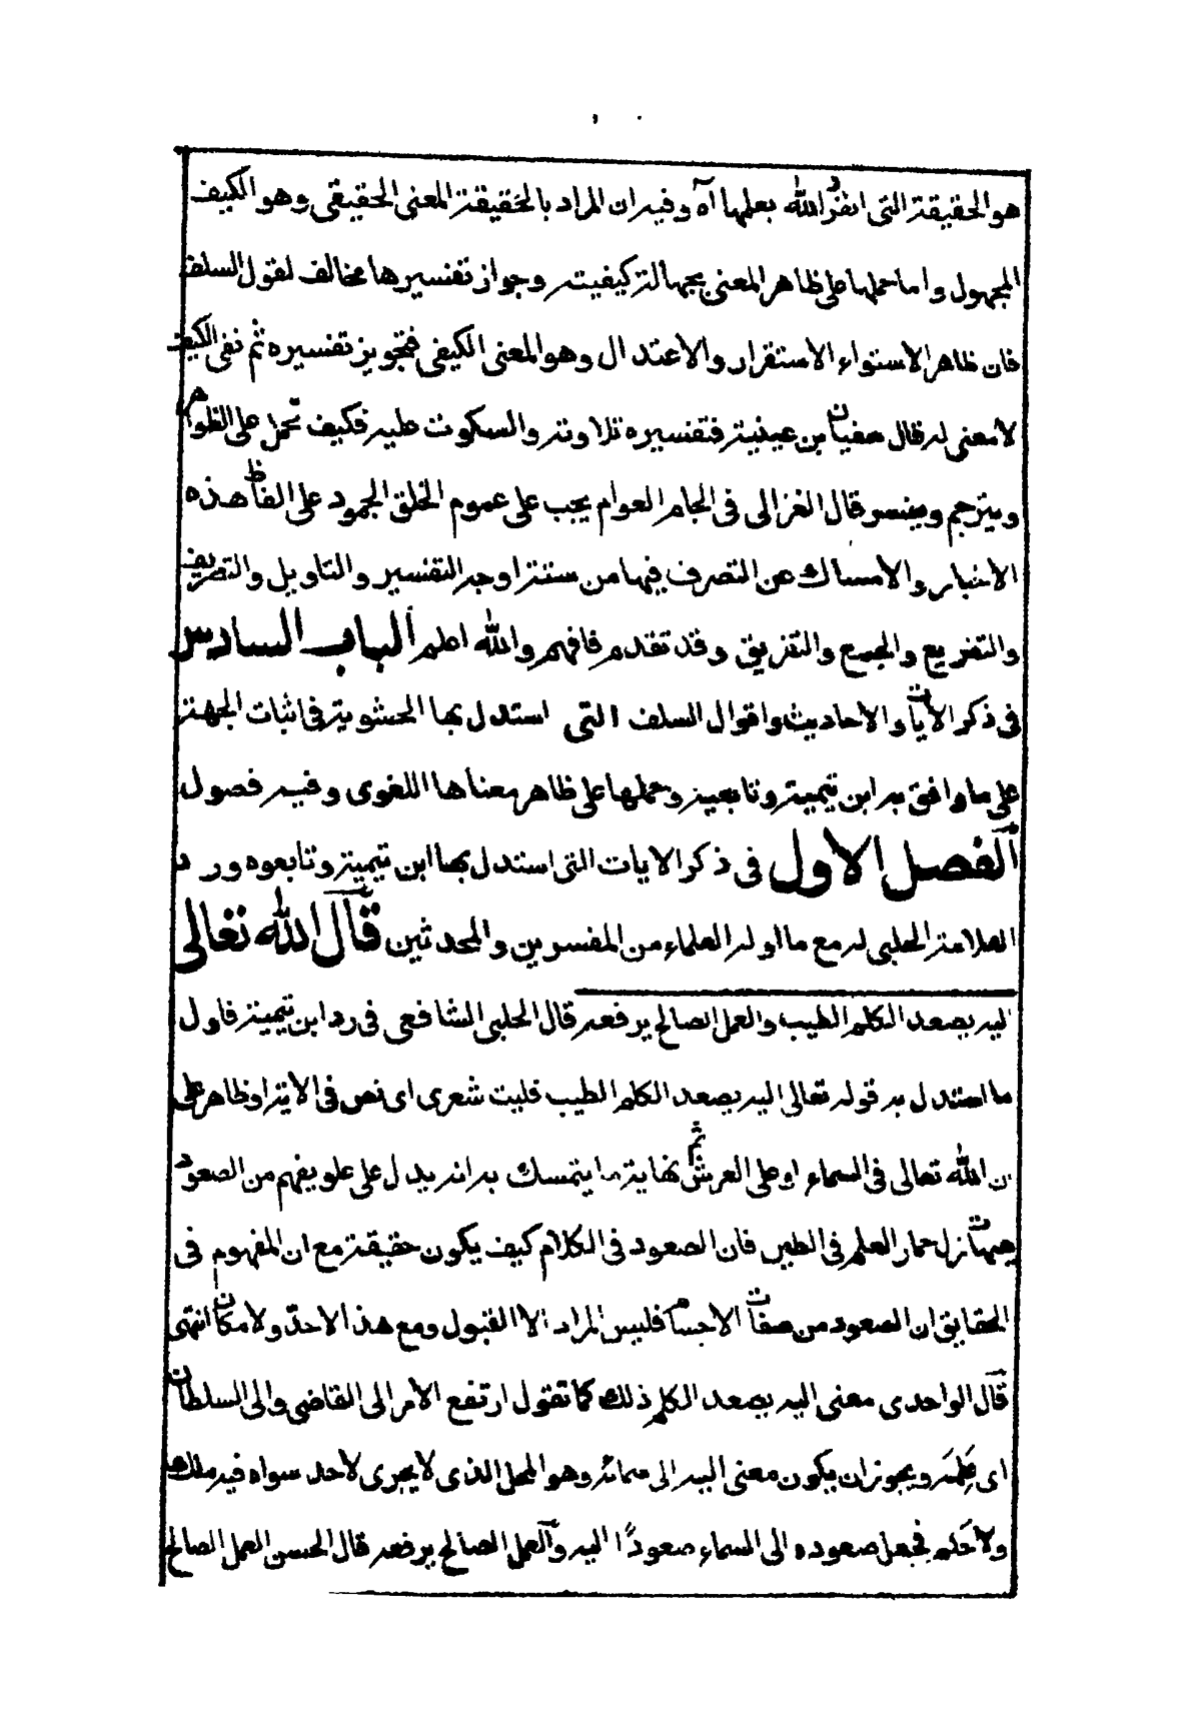 هو الحقيقة التى انفرد الله بعلمها آه وفيه ان المراد بالحقيقة المعنى الحقيقى وهو الكيف
المجهول واما حملها على ظاهر المعنى بجهالة كيفيته وجواز تفسيرها مخالف لقول السلف
فان ظاهر الاستواء الاستقرار والاعتدال وهو المعنى الكيفى فتجويز تفسيره ثم نفى الكيف
لا معنى له قال سفيان بن عيينة فتفسيره تلاوته والسكوت عليه فكيف تحمل على الظواهر
ويترجم ويفسر وقال الغزالى فى الجام العوام يجب على عموم الخلق الجمود على الفاظ هذه
الاخبار والامساك عن التصرف فيها من ستة اوجه التفسير والتاويل والتصريف
والتفريع والجمع والتفريق وقد تقدم فافهم والله اعلم الباب السادس
فى ذكر الآيات والاحاديث واقوال السلف التى استدل بها الحشوية فى اثبات الجهة
على ما وافق به ابن تيمية وتابعيه وحملها على ظاهر معناها اللغوى وفيه فصول
الفصل الاول فى ذكر الايات التى استدل بها ابن تيمية وتابعوه ورد
العلامة الحلبى له مع ما اوله العلماء من المفسرين والمحدثين قال الله تعالى
اليه يصعد الكلم الطيب والعمل الصالح يرفعه قال الحلبى الشافعى فى رد ابن تيمية فاول
ما استدل به قوله تعالى اليه يصعد الكلم الطيب فليت شعرى اى نص فى الاية او ظاهر على
ن الله تعالى فى السماء او على العرش ثم نهاية ما يتمسك به انه يدل على علو يفهم من الصعود
هيهات زل حمار العلم فى الطين فان الصعود فى الكلام كيف يكون حقيقة مع ان المفهوم فى
الحقايق ان الصعود من صفات الاجسام فليس المراد الا القبول ومع هذا لا حد ولا مكان انتهى
قال الواحدى معنى اليه يصعد الكلم ذلك كما تقول ارتفع الامر الى القاضى والى السلطان
اى علمه ويجوز ان يكون معنى اليه الى سمائه وهو المحل الذى لا يجرى لاحد سواه فيه ملك
ولا حكم فجعل صعوده الى السماء صعودًا اليه والعمل الصالح يرفعه قال الحسن العمل الصالح